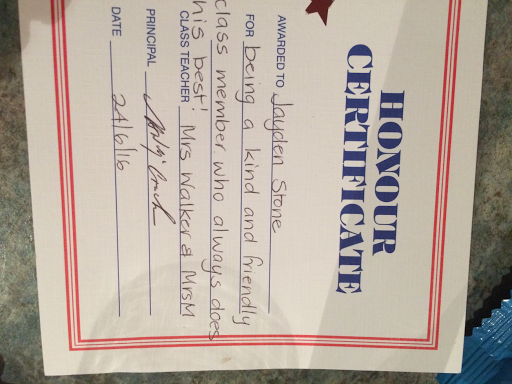 HONOUR
CERTIFICATE
AWARDED TO Jayden Stone
FOR being a kind and friendly
class member who always does
his best!
CLASS TEACHER Mrs Walker & Mrs M
PRINCIPAL
DATE 24/6/16